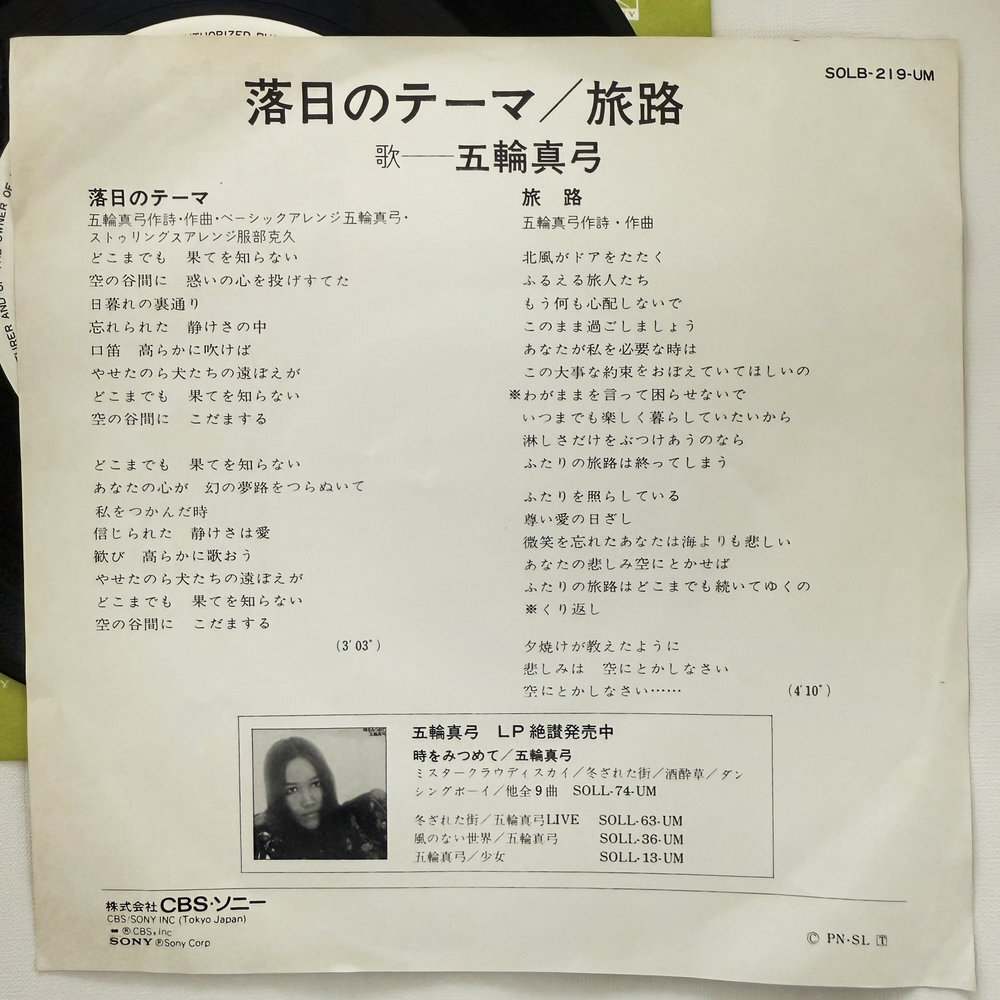 SOLB-219-UM
落日のテーマ／旅路
歌──五輪真弓
落日のテーマ
五輪真弓作詩・作曲・ベーシックアレンジ五輪真弓・
ストゥリングスアレンジ服部克久
どこまでも　果てを知らない
空の谷間に　惑いの心を投げすてた
日暮れの裏通り
忘れられた　静けさの中
口笛　高らかに吹けば
やせたのら犬たちの遠ぼえが
どこまでも　果てを知らない
空の谷間に　こだまする
どこまでも　果てを知らない
あなたの心が　幻の夢路をつらぬいて
私をつかんだ時
信じられた　静けさは愛
歓び　高らかに歌おう
やせたのら犬たちの遠ぼえが
どこまでも　果てを知らない
空の谷間に　こだまする
(3'03")
旅　路
五輪真弓作詩・作曲
北風がドアをたたく
ふるえる旅人たち
もう何も心配しないで
このまま過ごしましょう
あなたが私を必要な時は
この大事な約束をおぼえていてほしいの
※わがままを言って困らせないで
いつまでも楽しく暮らしていたいから
淋しさだけをぶつけあうのなら
ふたりの旅路は終ってしまう
ふたりを照らしている
尊い愛の日ざし
微笑を忘れたあなたは海よりも悲しい
あなたの悲しみ空にとかせば
ふたりの旅路はどこまでも続いてゆくの
※くり返し
夕焼けが教えたように
悲しみは　空にとかしなさい
空にとかしなさい……
(4'10")
五輪真弓　LP絶讃発売中
時をみつめて／五輪真弓
ミスタークラウディスカイ／冬ざれた街／酒酔草／ダン
シングボーイ／他全9曲　SOLL-74-UM
冬ざれた街／五輪真弓LIVE　SOLL-63-UM
風のない世界／五輪真弓　SOLL-36-UM
五輪真弓／少女　SOLL-13-UM
株式会社CBS・ソニー
CBS/SONY INC (Tokyo Japan)
Ⓡ CBS, inc
SONY ⓇSony Corp
Ⓒ PN・SL 🅃